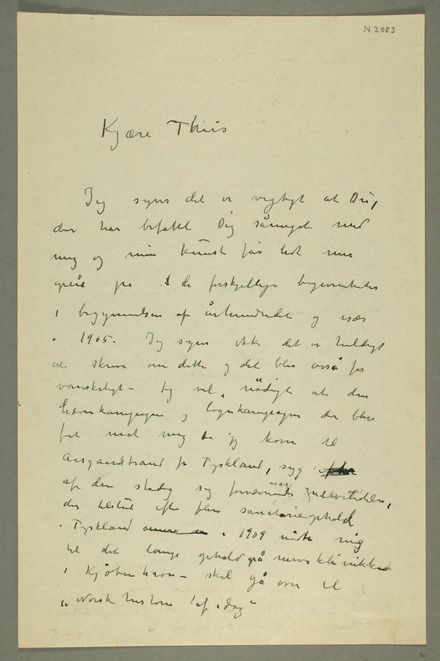 N 2083
Kjære Thiis
Jeg synes det er vigtigt at Du,
der har befattet Dig såmeget med
mig og min Kunst får lidt mer
greie på de forskjellige begivenheter
i begyndelsen af århundredet og især
i 1905. Jeg synes ikke det er heldigt
at skrive om dette og det blir også for
vanskeligt – Jeg vil nødigt at den
og løgnkampagne der blev
ført mod mig da jeg kom til
Aasgaardstrand fra Tyskland, syg
af den stadig sig nervelidelse,
der tilslut efter flere sanatorieophold
i Tyskland i 1909
til det lange ophold på nerveklinikken
i Kjøbenhavn – skal gå over til
„Norsk historie af idag"